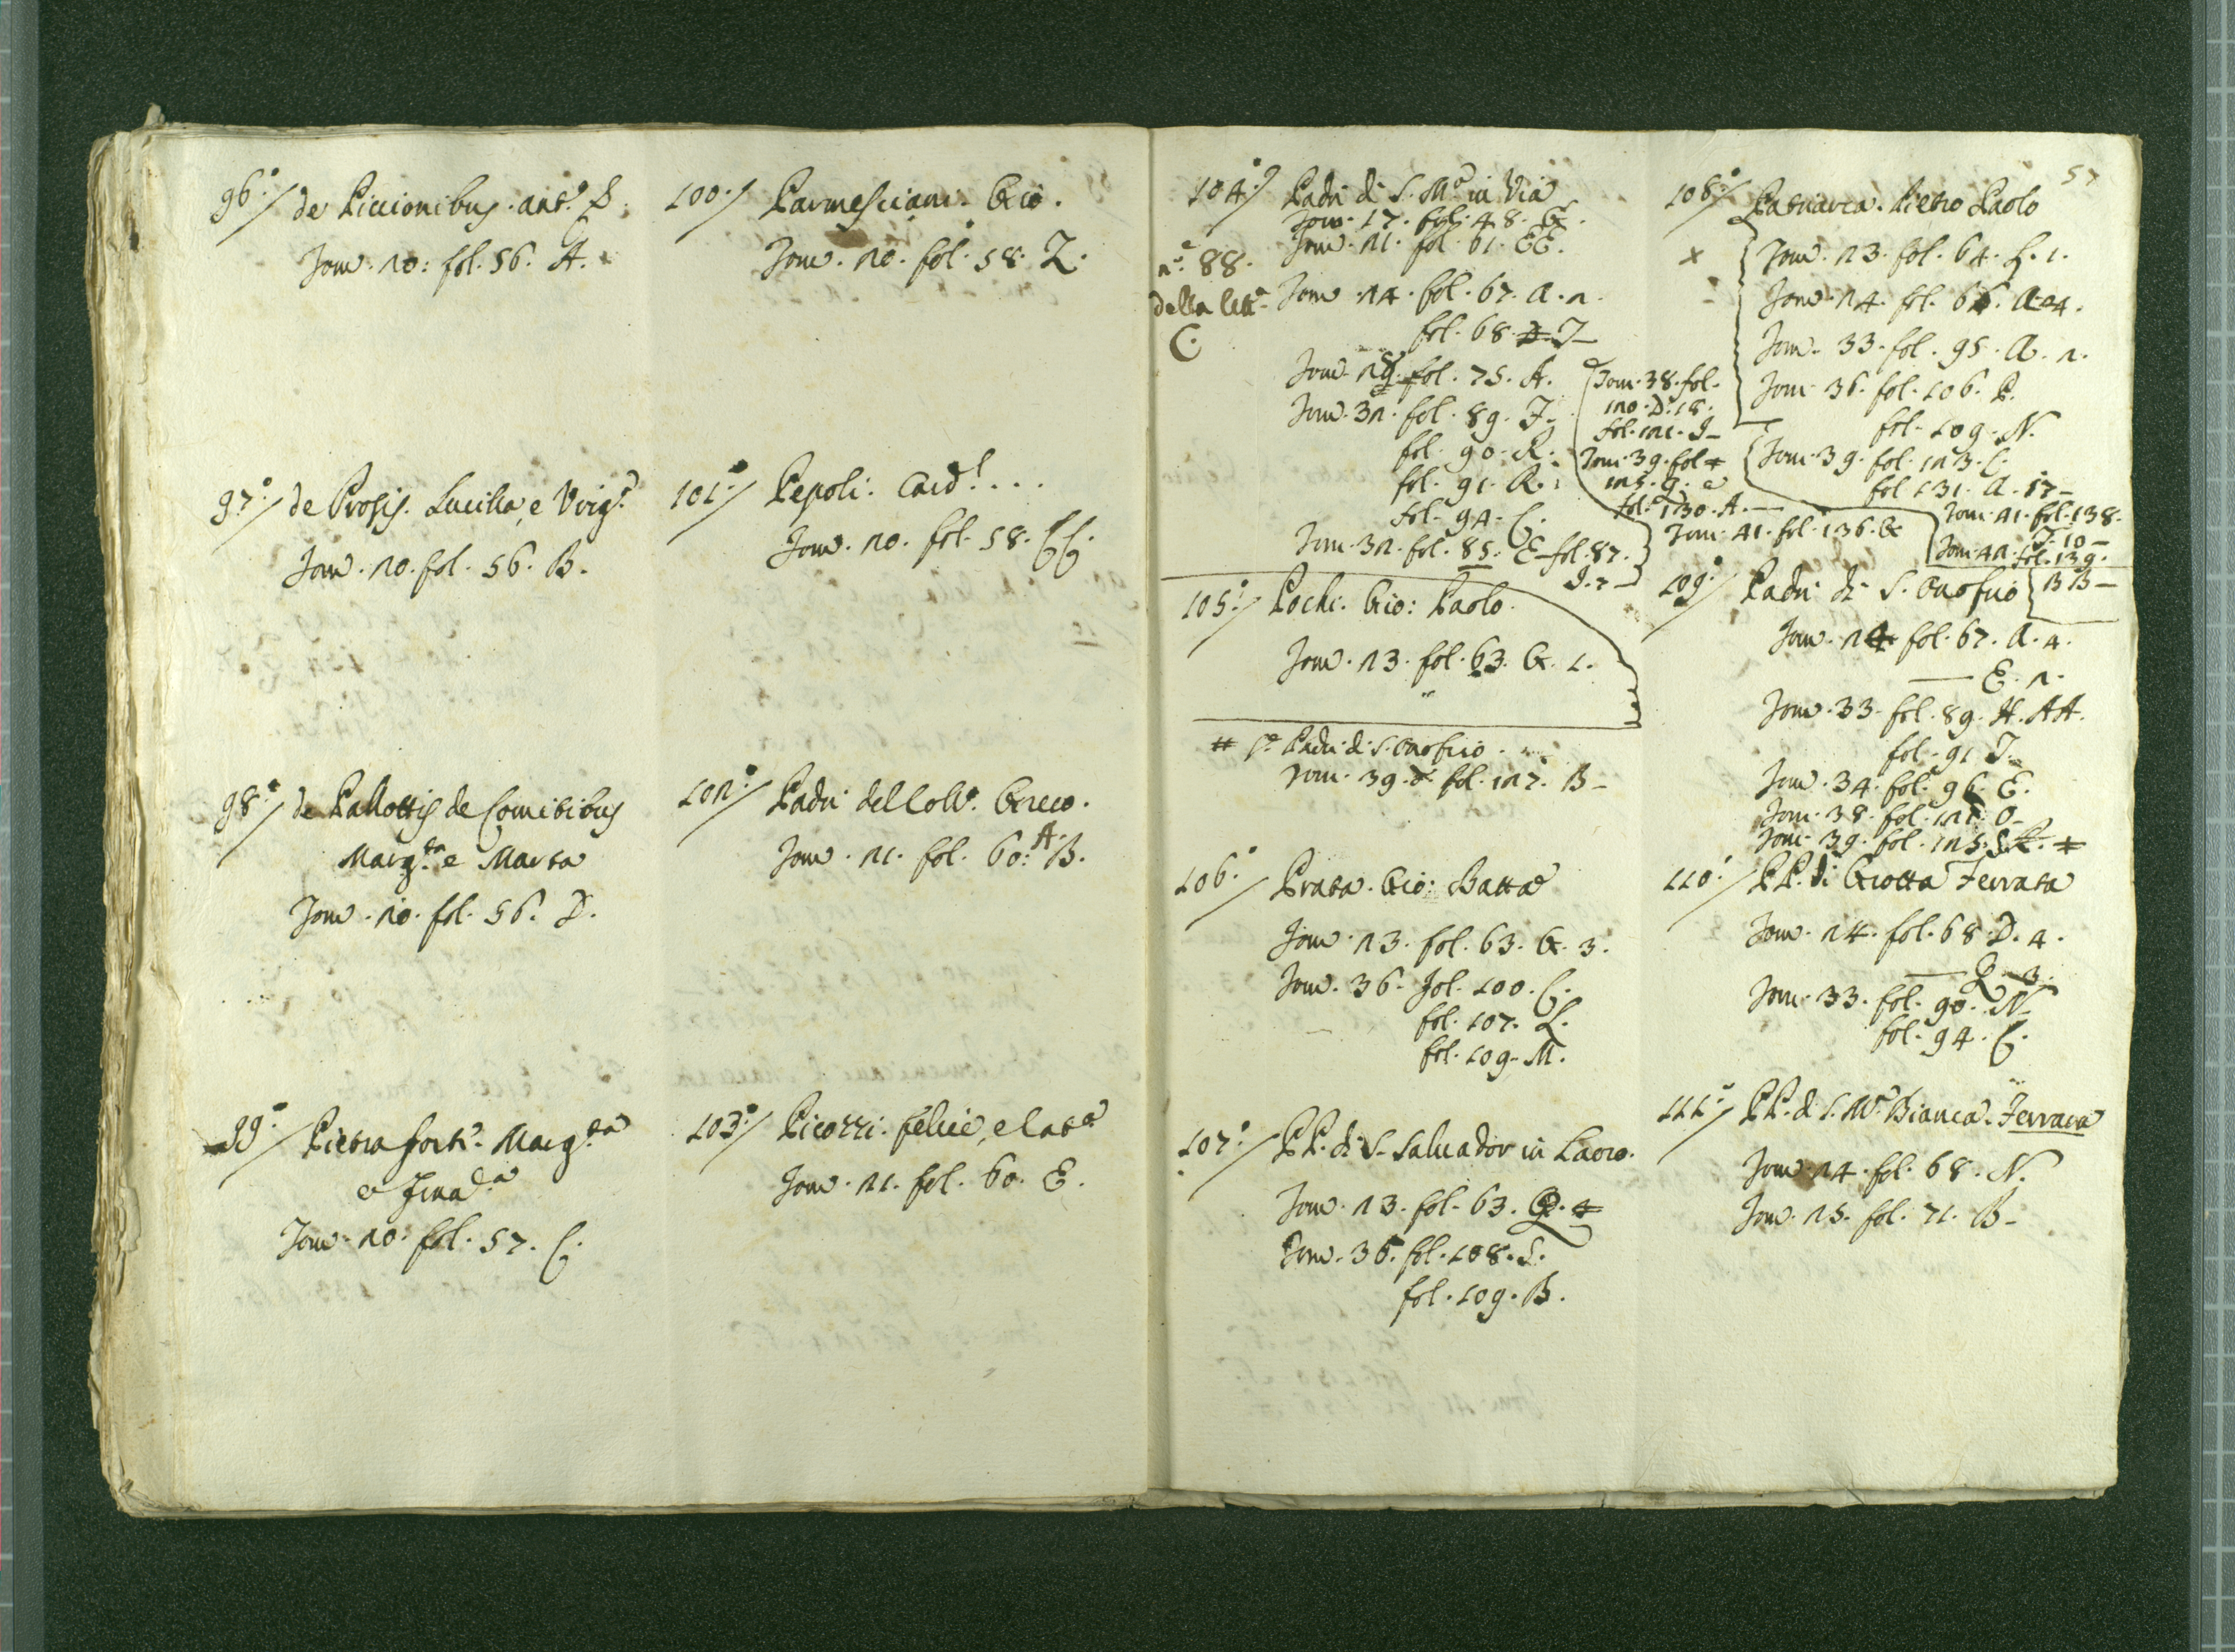 96.°/ de Piccionibus. Ant.°
Tom. 20: fol. 56. A.
97.°/ de Prosis. Lucilla, e Virg.ª
Tom. 20. fol. 56. B.
98.°/ de Pallottis de Comitibus
Marg.ta e Marta
Tom. 20. fol. 56. D.
99.°/ Pietra forti. Marg.ta
e
Tom. 20. fol. 57. C.
100./ Parmesciani. Gio.
Tom. 20. fol. 58. Z.
101./ Pepoli. Card.l...
Tom. 20. fol. 58. CC.
102.°/ Padri del Coll.° Greco.
Tom. 21. fol. 60: A. B.
103.°/ Picozzi. Felice, e Cat.ª
Tom. 21. fol. 60. E.
57
104.°/ Padri di S. M.ª in Via
Tom. 17. fol. 48. G.
Tom. 21. fol. 61. EE.
n.° 88.
della lett.ª
C.
Tom. 24. fol. 67. A. 2.
fol. 68. D. I_
Tom. 28. fol. 75. A.
Tom. 32. fol. 89. I_
fol. 90. R.
fol. 91. R.
fol. 94. C.
Tom. 32. fol. 85. E_ fol. 87.
I. 7_
Tom. 38. fol.
120. D. 18.
fol. 121. I_
Tom. 39. fol.
125. G. e
fol. 130. A._
Tom. 41. fol. 136. G
105.°/ Pochi. Gio: Paolo.
Tom. 23. fol. 63. G. 1.
# S.e Padri di S. Onofrio.
Tom. 39. fol. 127. B_
106.°/ Prata. Gio: Batta
Tom. 23. fol. 63. G. 3.
Tom. 36. fol. 100. C.
fol. 107. L.
fol. 109. M.
107.°/ PP. di S. Saluador in Lauro.
Tom. 23. fol. 63. G. 4
Tom. 36. fol. 108. S.
fol. 109. B.
108.°/ Patriarca. Pietro Paolo
x Tom. 23. fol. 64. L. 1.
Tom. 24. fol. 66. A. 4.
Tom. 33. fol. 95. A. 2.
Tom. 36. fol. 106. P.
fol. 109. N.
Tom. 39. fol. 123. C.
fol. 131. A. 17_
Tom. 41. fol. 138.
I. 10_
Tom. 42. fol. 139.
BB_
109.°/ Padri di S. Onofrio
Tom. 24 fol. 67. A. 4.
— E. 2.
Tom. 33. fol. 89. H. AA.
fol. 91 I_
Tom. 34. fol. 96. E.
Tom. 38. fol. 121. O_
Tom. 39. fol. 125. #
110.°/ PP. di Grotta Ferrata
Tom. 24. fol. 68. D. 4.
— Q. 3.
Tom. 33. fol. 90. N_
fol. 94. C.
111.°/ PP. di S. M.ª Bianca. Ferrara
Tom. 24. fol. 68. N.
Tom. 25. fol. 71. B_